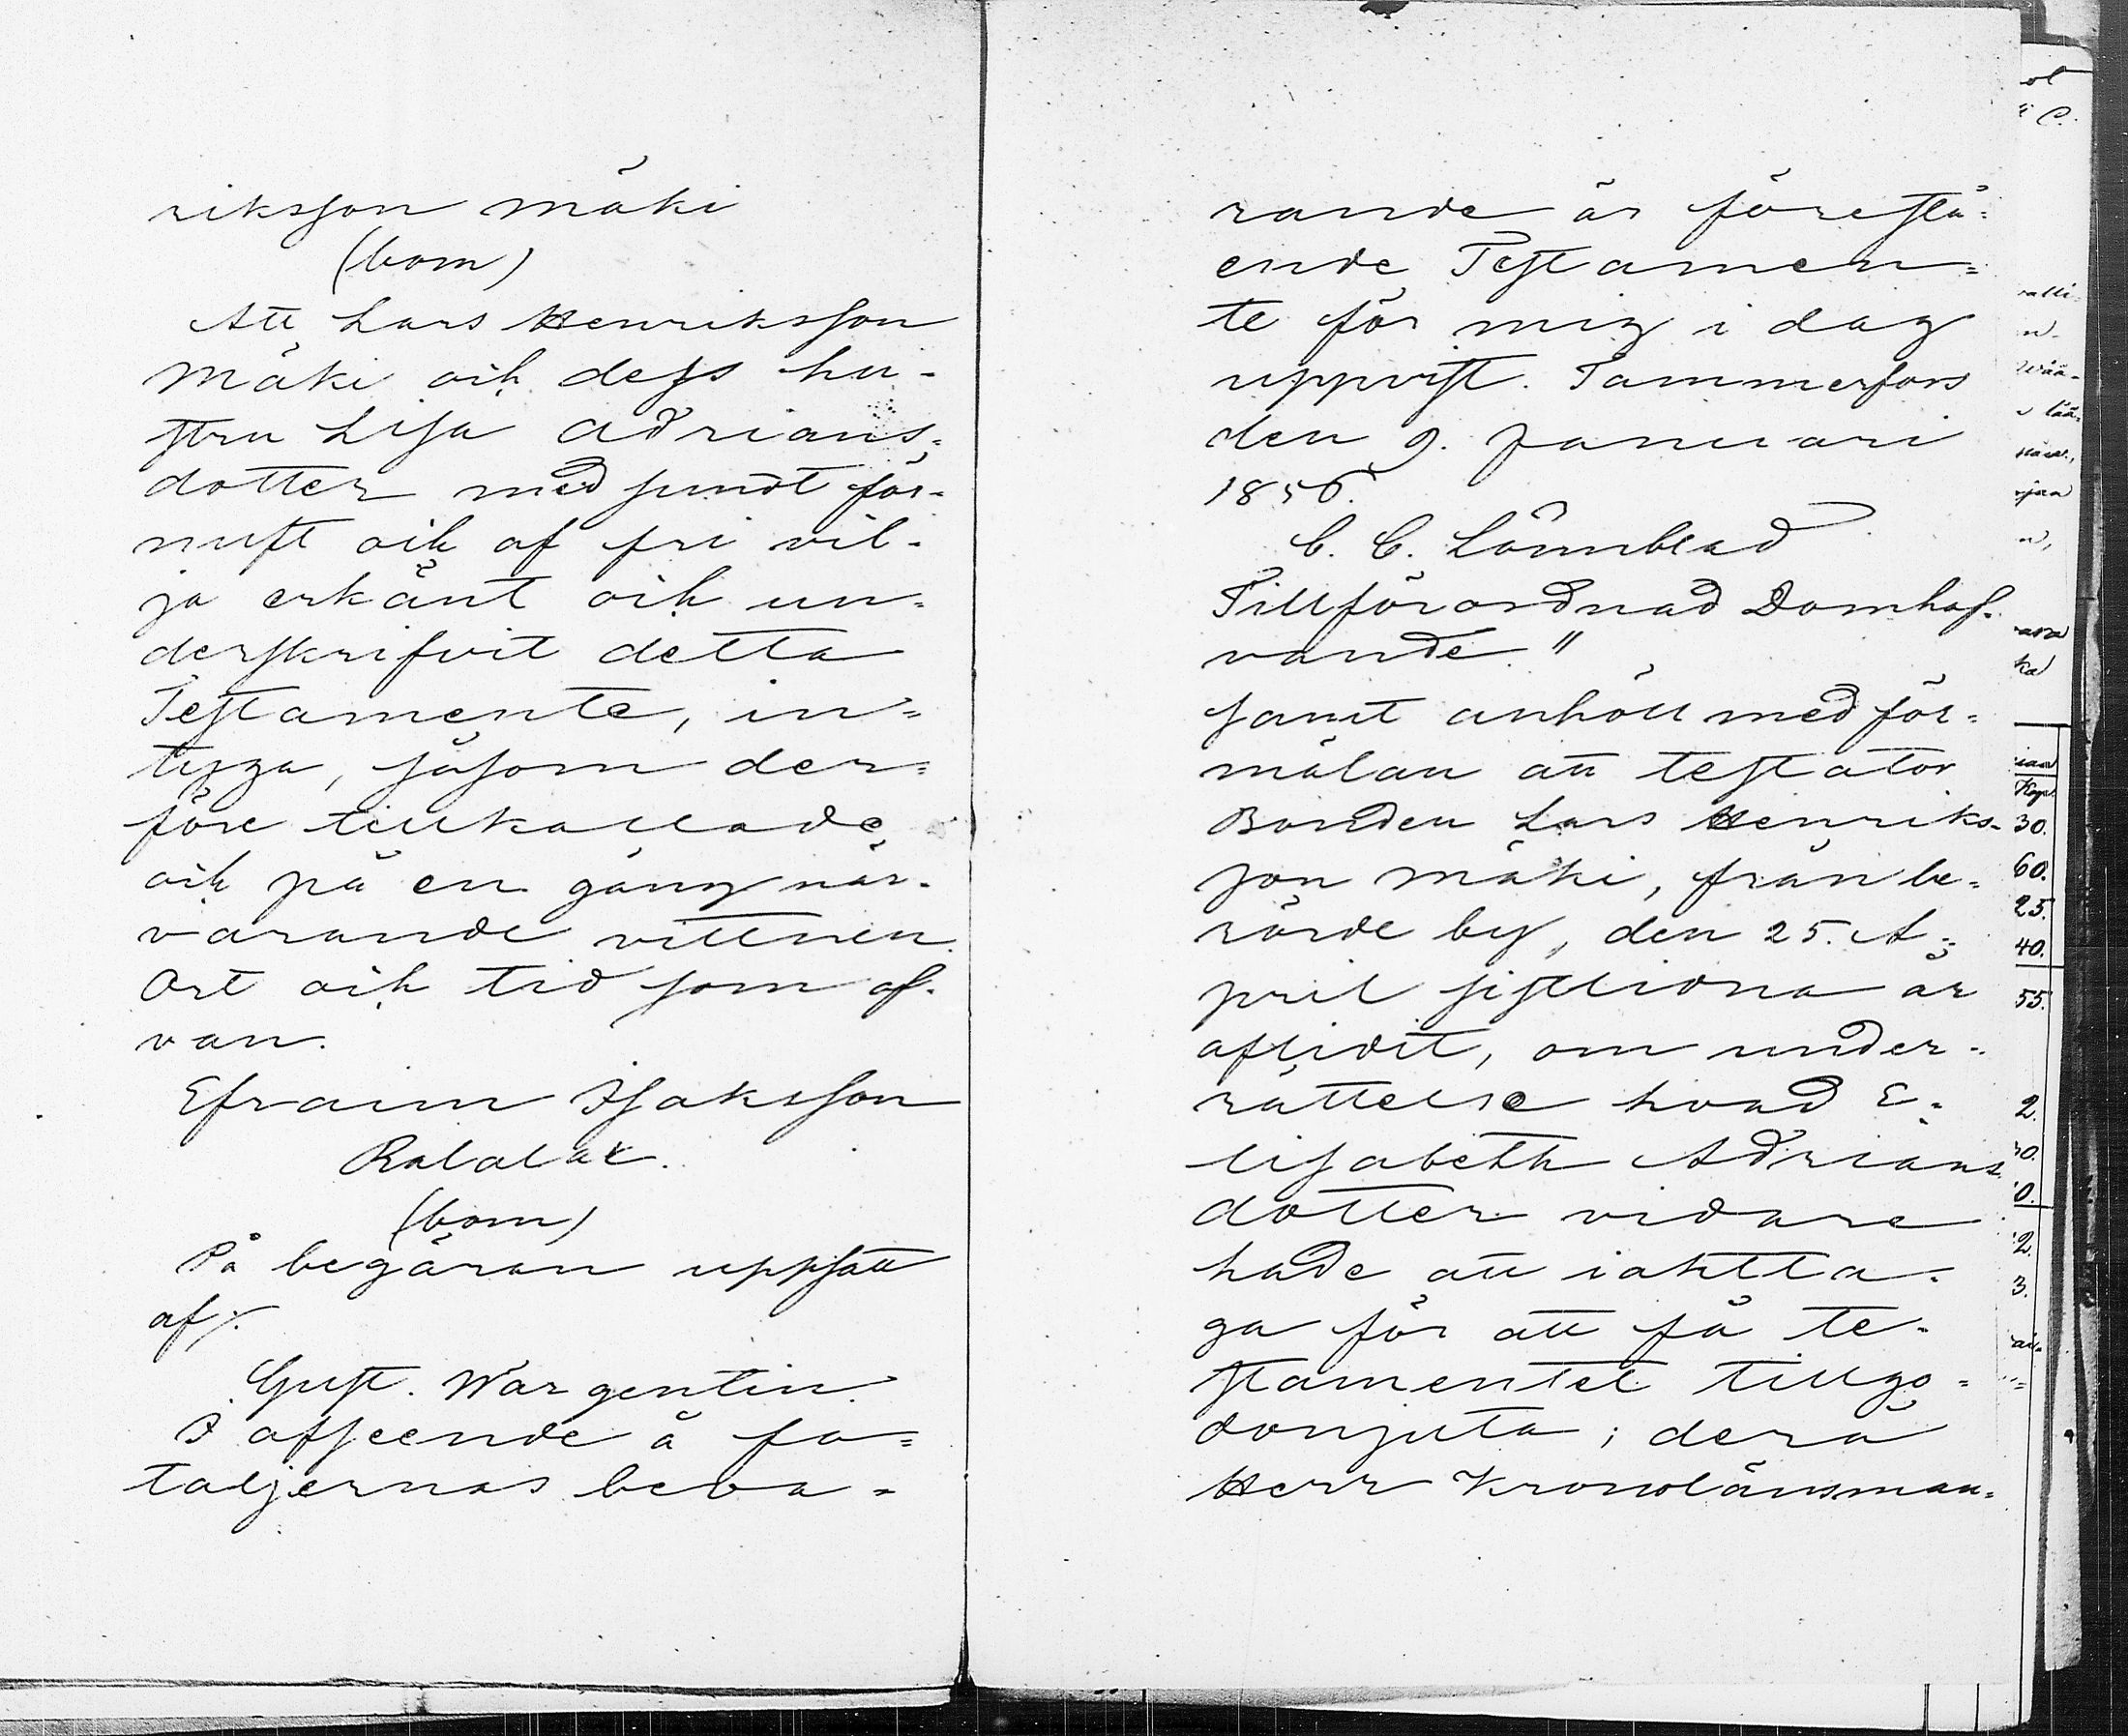 riksson Mäki
(bom)
Att Lars Henriksson
Mäki och dess hu-
stru Lisa Adrians-
dotter med sundt för-
nuft och af fri vil-
ja erkänt och un-
derskrifvit detta
Testamente, in-
tyga, såsom der-
före tillkallade
och på en gång när-
varande vittnen.
Ort och tid som of-
van.
Efraim Isaksson
(bom)
På begäran uppsatt
af/.
Gust. Wargentin
I afseende å fa-
taljernas beva-
rande är förestå-
ende Testamen-
te för mig i dag
uppvist. Tammerfors
den 9. Januari
1856.
C. C. Lönnblad
Tillförordnad Domhaf-
vande"
samt anhöll med för-
mälan att testator
Bonden Lars Henriks-
son Mäki, från be-
rörde by, den 25. A-
pril sistlidna år
aflidit, om under-
rättelse hvad E-
lisabeth Adrians
dotter vidare
hade att iaktta-
ga för att få te-
stamentet tillgo-
donjuta; derå
Herr Kronolänsman-
Kop.
30.
60.
25.
40.
55.